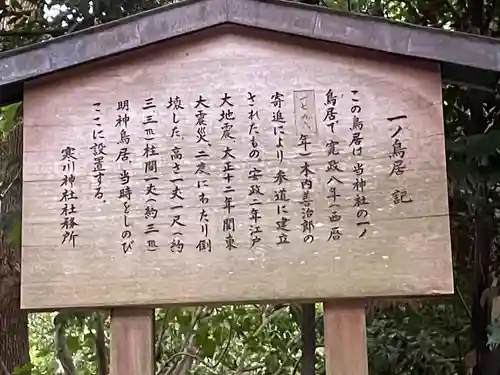 一ノ鳥居 記
この鳥居は当神社の一ノ
鳥居で寛政八年(西暦
年)木内善治郎の
寄進により参道に建立
されたもの、安政二年江戸
大地震、大正十二年関東
大震災、二度にわたり倒
壊した。高さ一丈一尺(約
三三m)柱間一丈(約三m)
明神鳥居。当時をしのび
ここに設置する。
寒川神社社務所